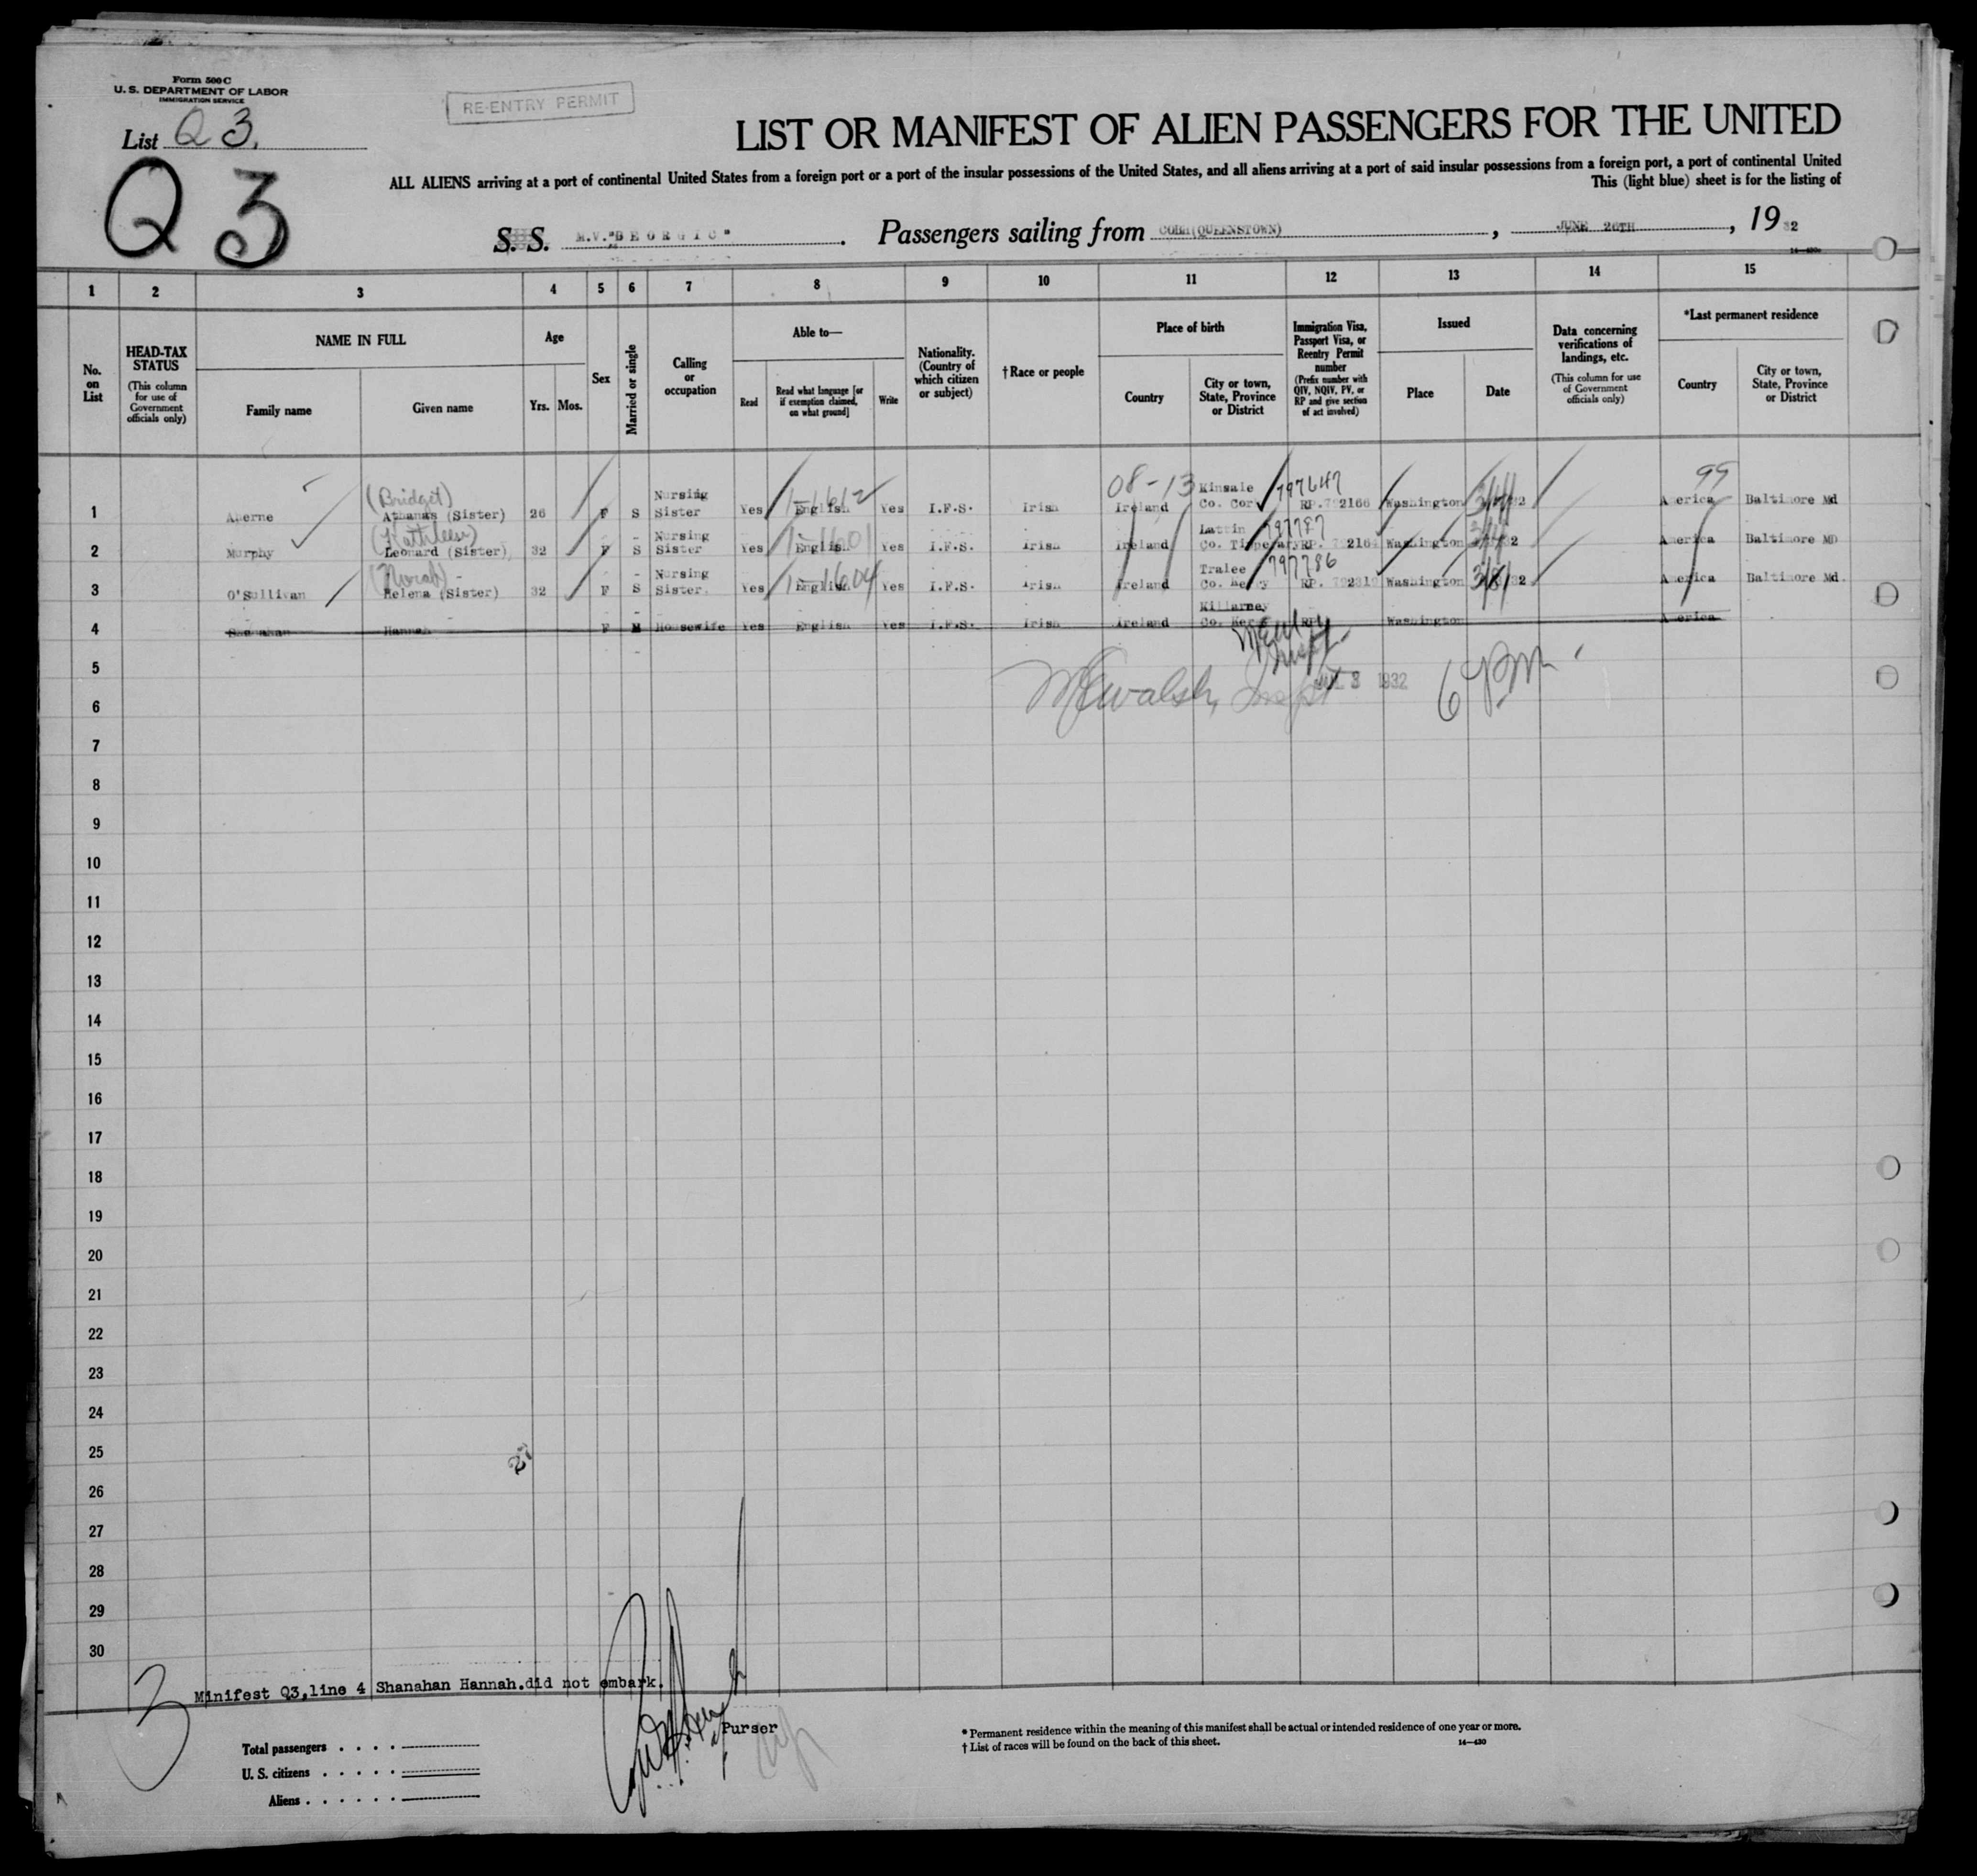 Form 500 C
U. S. DEPARTMENT OF LABOR
IMMIGRATION SERVICE
RE-ENTRY PERMIT
List Q 3.
Q 3
LIST OR MANIFEST OF ALIEN PASSENGERS FOR THE UNITED
ALL ALIENS arriving at a port of continental United States from a foreign port or a port of the insular possessions of the United States, and all aliens arriving at a port of said insular possessions from a foreign port, a port of continental United
This (light blue) sheet is for the listing of
S. S. M.V."GEORGIC". Passengers sailing from COBH(QUEENSTOWN), JUNE 26TH, 1932
1 2 3 4 5 6 7 8 9 10 11 12 13 14 15
No. on List
HEAD-TAX STATUS
(This column for use of Government officials only)
NAME IN FULL
Family name
Given name
Age
Yrs. Mos.
Sex
Married or single
Calling or occupation
Able to—
Read
Read what language [or if exemption claimed, on what ground]
Write
Nationality. (Country of which citizen or subject)
†Race or people
Place of birth
Country
City or town, State, Province or District
Immigration Visa, Passport Visa, or Reentry Permit number
(Prefix number with QIV, NQIV, PV, or RP and give section of act involved)
Issued
Place
Date
Data concerning verifications of landings, etc.
(This column for use of Government officials only)
*Last permanent residence
Country
City or town, State, Province or District
99
(Bridget) Nursing 08-13 Kinsale 797647
1 Aherne Athanas (Sister) 26 F S Sister Yes English Yes I.F.S. Irish Ireland Co. Cork RP. 792166 Washington America Baltimore Md
(Kathleen) Nursing Lattin 797787
2 Murphy Leonard (Sister) 32 F S Sister Yes English Yes I.F.S. Irish Ireland Co. Tipperary RP. Washington America Baltimore MD
(Norah) Nursing Tralee 797786
3 O'Sullivan Helena (Sister) 32 F S Sister Yes English Yes I.F.S. Irish Ireland Co. Kerry RP. Washington America Baltimore Md.
Killarney
4 Shanahan Hannah F M Housewife Yes English Yes I.F.S. Irish Ireland Co. Kerry RP Washington America
5
6 Walsh, Inspt 3 1932 6 PM
7
8
9
10
11
12
13
14
15
16
17
18
19
20
21
22
23
24
25
26
27
28
29
30
3
Minifest Q3,line 4 Shanahan Hannah.did not embark.
Purser
Total passengers
U. S. citizens
Aliens
* Permanent residence within the meaning of this manifest shall be actual or intended residence of one year or more.
† List of races will be found on the back of this sheet.
14—430